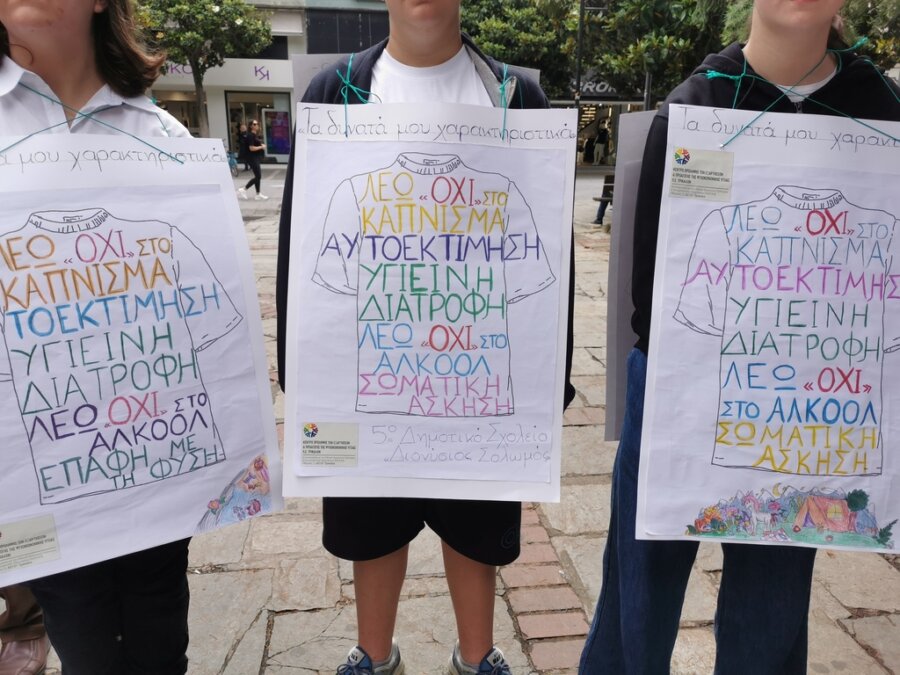 μου χαρακτηριστικά»
ΛΕΩ «ΟΧΙ» ΣΤΟ
ΚΑΠΝΙΣΜΑ
ΤΟΕΚΤΙΜΗΣΗ
ΥΓΙΕΙΝΗ
ΔΙΑΤΡΟΦΗ
ΛΕΩ «ΟΧΙ» ΣΤΟ
ΑΛΚΟΟΛ
ΕΠΑΦΗ ΜΕ
ΤΗ ΦΥΣΗ
«Τα δυνατά μου χαρακτηριστικά»
ΛΕΩ «ΟΧΙ» ΣΤΟ
ΚΑΠΝΙΣΜΑ
ΑΥΤΟΕΚΤΙΜΗΣΗ
ΥΓΙΕΙΝΗ
ΔΙΑΤΡΟΦΗ
ΛΕΩ «ΟΧΙ» ΣΤΟ
ΑΛΚΟΟΛ
ΣΩΜΑΤΙΚΗ
ΑΣΚΗΣΗ
5ο Δημοτικό Σχολείο
«Διονύσιος Σολωμός
Τα δυνατά μου χαρακτη
ΛΕΩ «ΟΧΙ» ΣΤΟ
ΚΑΠΝΙΣΜΑ
ΑΥΤΟΕΚΤΙΜΗΣ
ΥΓΙΕΙΝΗ
ΔΙΑΤΡΟΦΗ
ΛΕΩ «ΟΧΙ»
ΣΤΟ ΑΛΚΟΟΛ
ΣΩΜΑΤΙΚΗ
ΑΣΚΗΣΗ